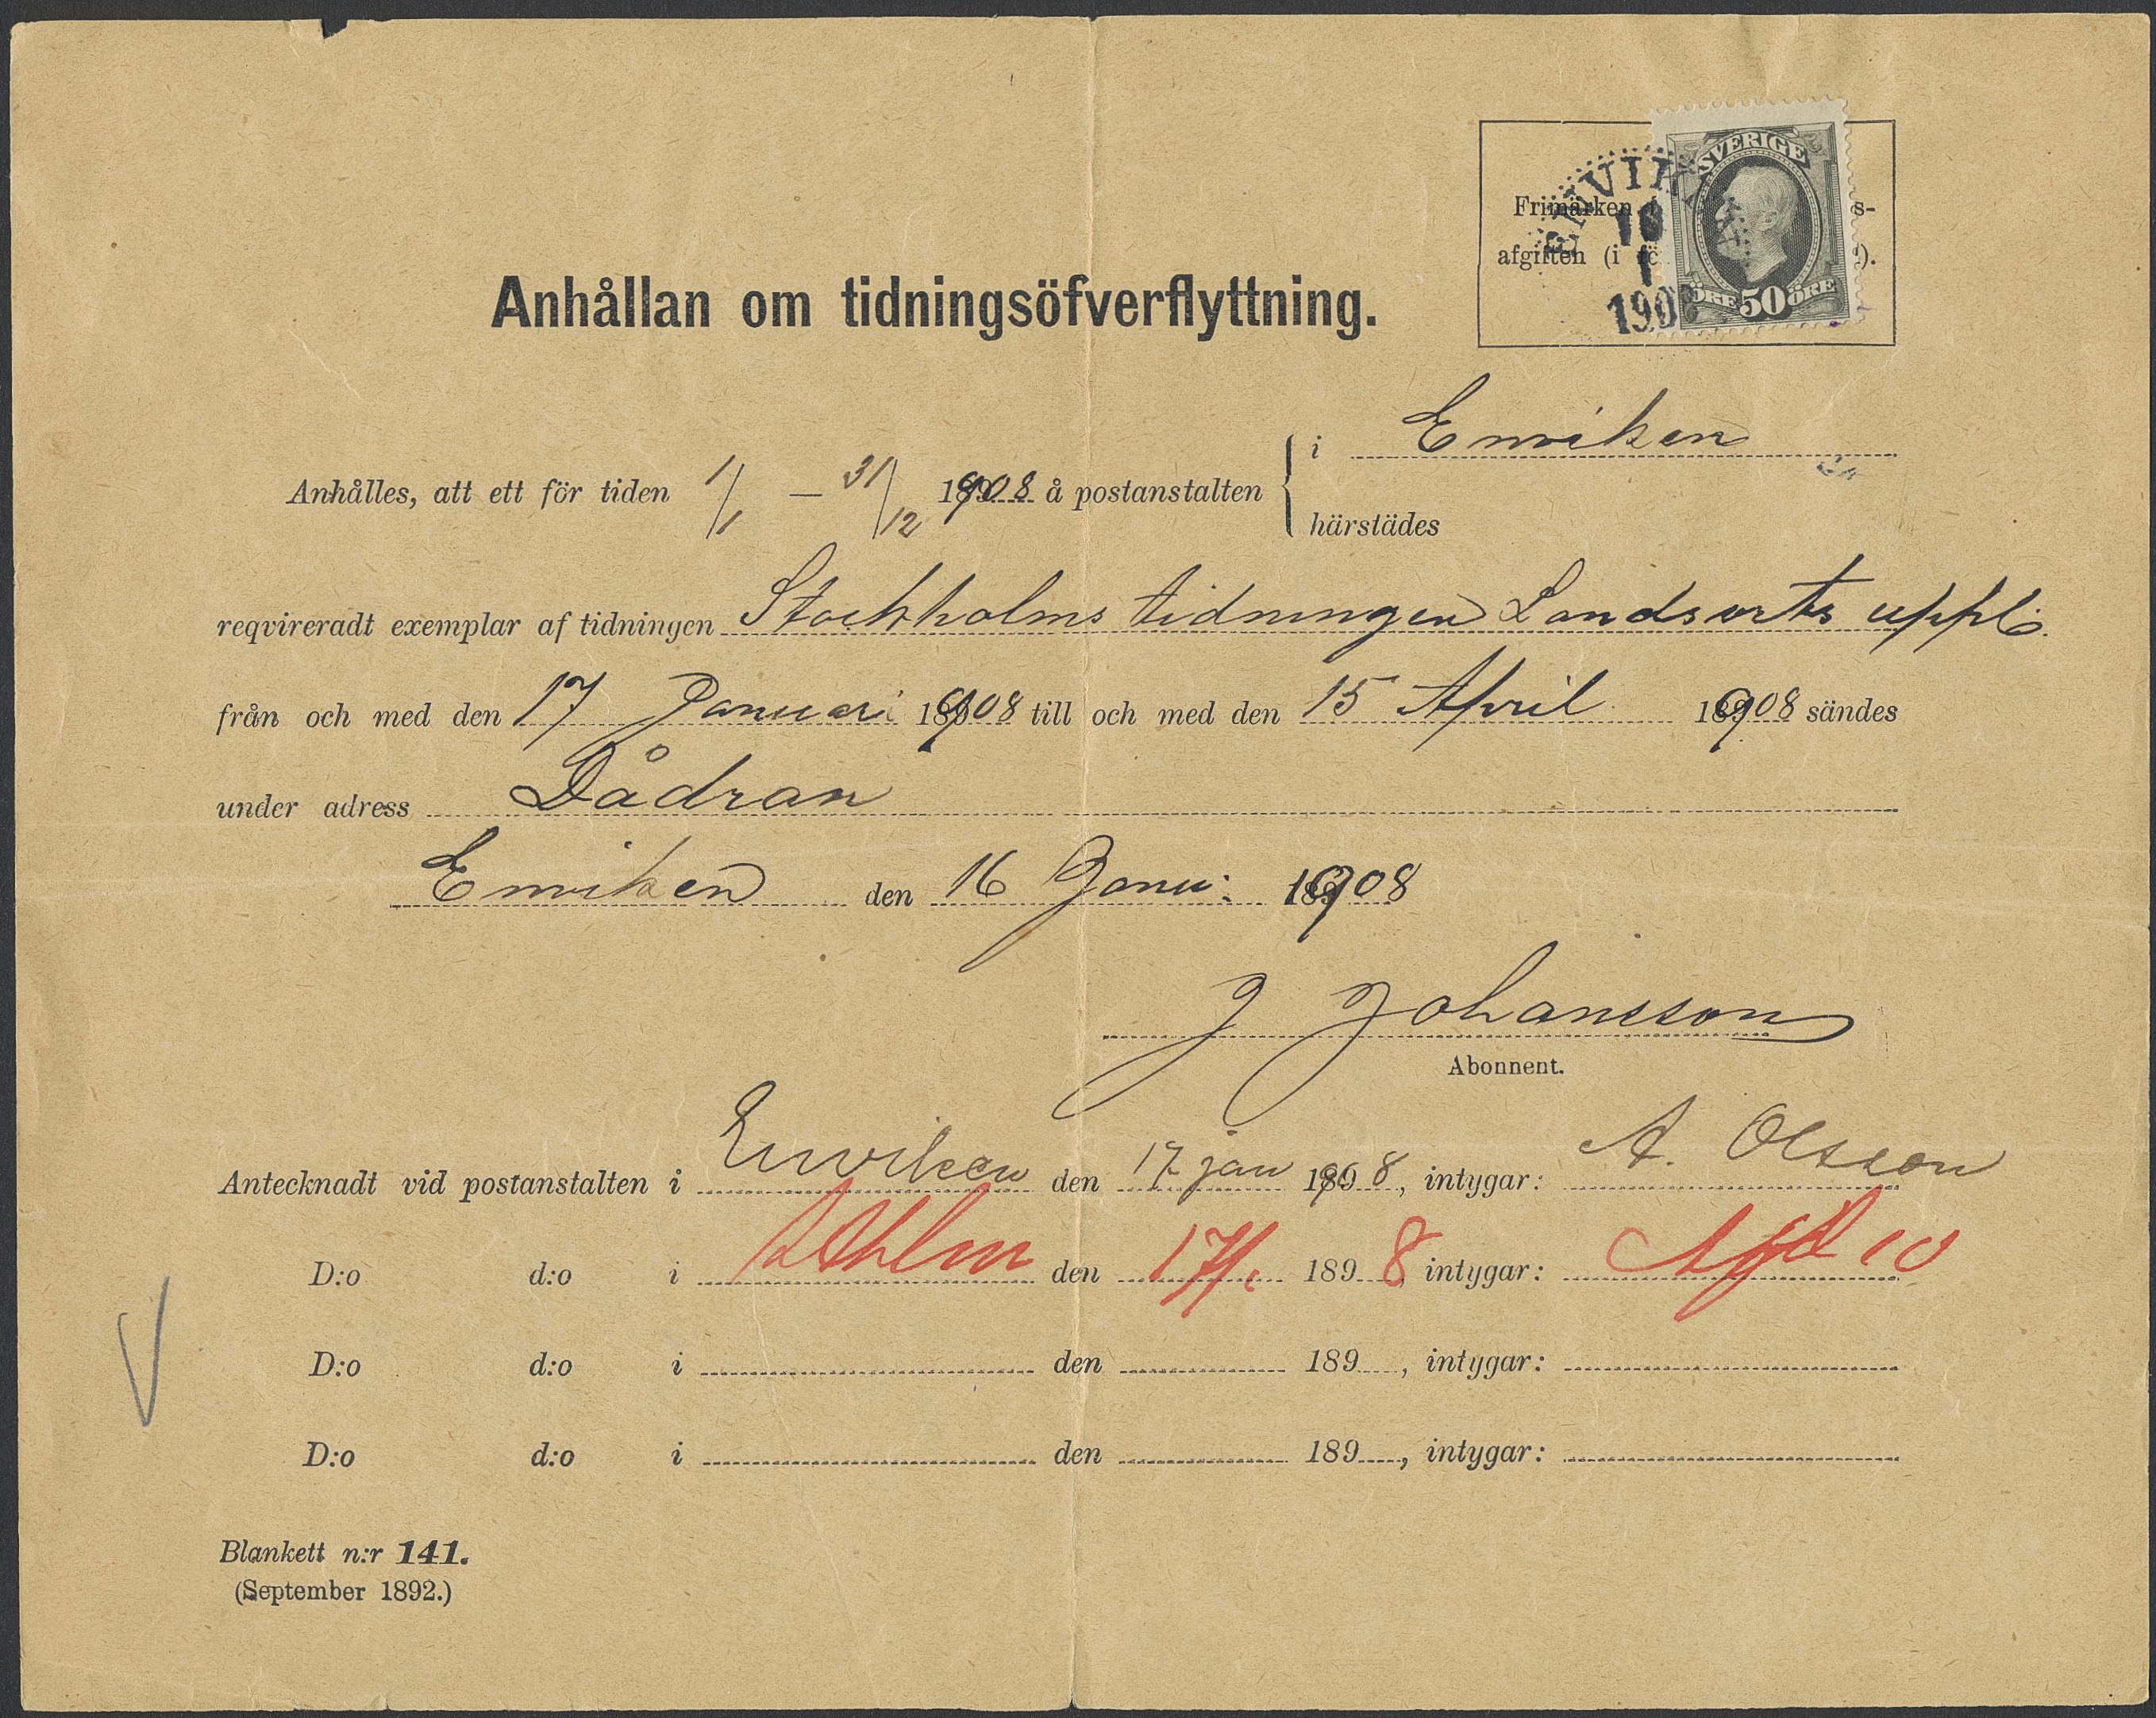 SVERIGE
ENVIK
Frimärken s-
afgiften (i fö ).
190
ÖRE 50 ÖRE
Anhållan om tidningsöfverflyttning.
i Enviken
Anhålles, att ett för tiden 1/1 — 31/12 1908 å postanstalten
härstädes
reqvireradt exemplar af tidningen Stockholms tidningen Landsorts uppl.
från och med den 17 Januari 1908 till och med den 15 April 1908 sändes
under adress Dådran
Enviken den 16 Janu: 1908
J Johansson
Abonnent.
Antecknadt vid postanstalten i Enviken den 17 jan 1908, intygar: A. Olsson
D:o d:o i Sthlm den 17/1 1898, intygar: 10
D:o d:o i den 189 , intygar:
D:o d:o i den 189 , intygar:
Blankett n:r 141.
(September 1892.)